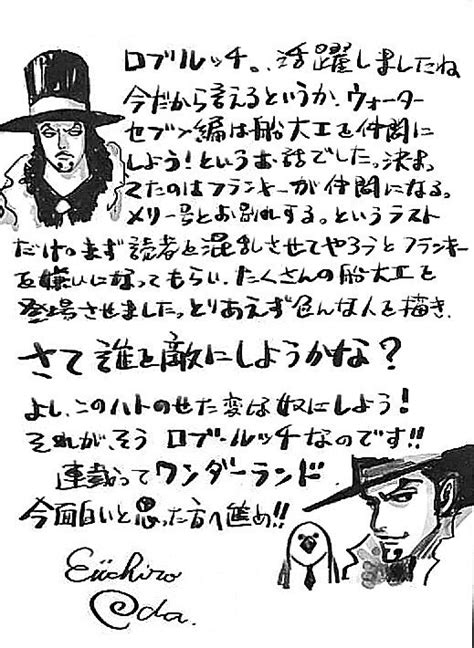 ロブ・ルッチ。活躍しましたね
今だから言えるというか、ウォーター
セブン編は船大工を仲間に
しよう！というお話でした。決め
てたのはフランキーが仲間になる。
メリー号とお別れする。というラスト
だけ。まず読者を混乱させてやろうとフランキー
を嫌いになってもらい、たくさんの船大工を
登場させました。とりあえず色んな人を描き、
さて誰を敵にしようかな？
よし、このハトのせた変な奴にしよう！
それが、そう ロブ・ルッチなのです!!
連載ってワンダーランド
今面白いと思った方へ進め!!
Eiichiro
Oda.